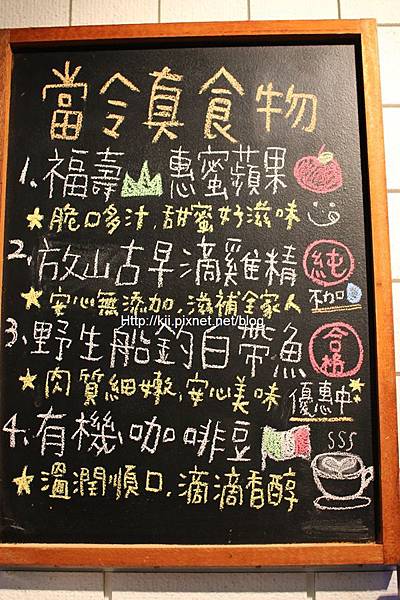 當令真食物
1.福壽 惠蜜蘋果
★脆口多汁,甜蜜好滋味
2.放山古早滴雞精 純
★安心無添加.滋補全家人 不加
Http://kii.pixnet.net/blog
3.野生船釣白帶魚 合格
★肉質細嫩,安心美味 優惠中
4.有機咖啡豆
★溫潤順口,滴滴香醇